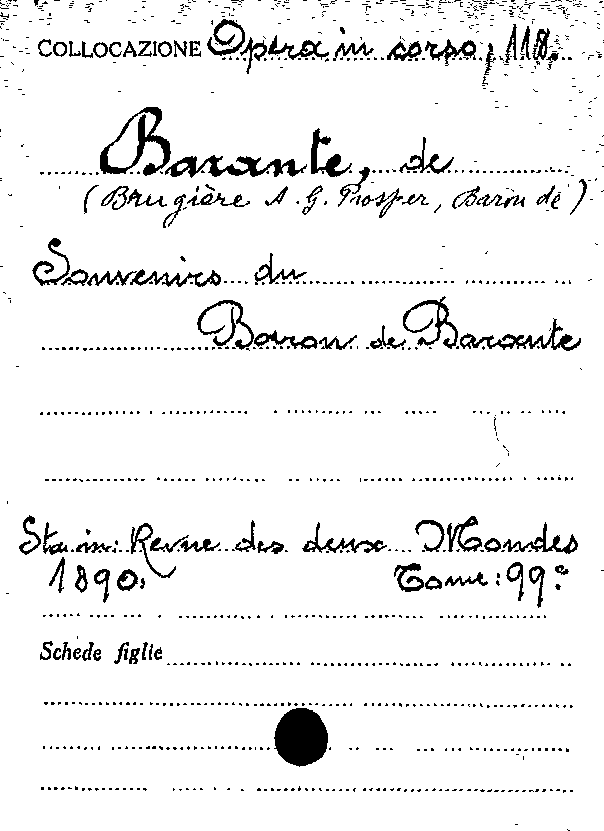 COLLOCAZIONE Opera in corso, 118.
Barante, de
(Brugière A. G. Prosper, Baron de)
Souvenirs du
Baron de Barante
Sta in: Revue des deux Mondes
1890. Tome: 99º
Schede figlie